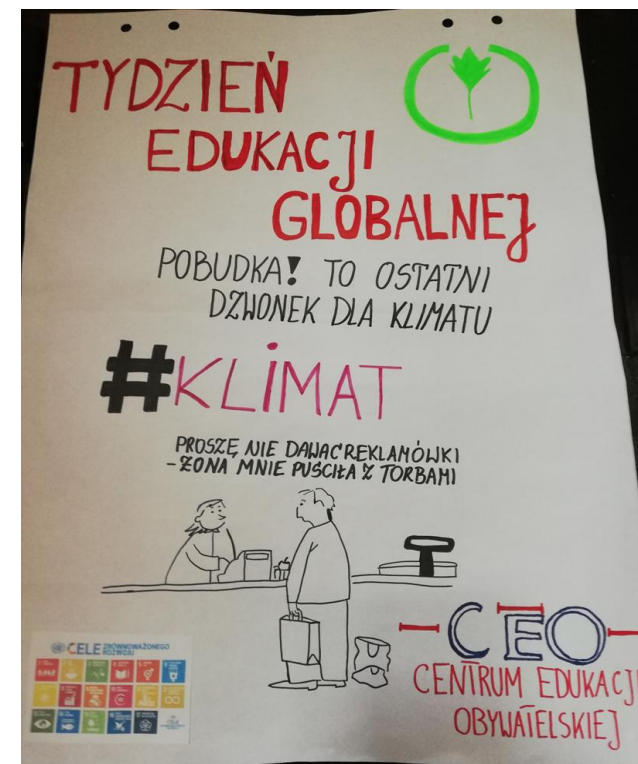 TYDZIEŃ
EDUKACJI
GLOBALNEJ
POBUDKA! TO OSTATNI
DZWONEK DLA KLIMATU
#KLIMAT
PROSZĘ NIE DAWAĆ REKLAMÓWKI
- ŻONA MNIE PUŚCIŁA Z TORBAMI
CELE ZRÓWNOWAŻONEGO
ROZWOJU
CEO
CENTRUM EDUKACJI
OBYWATELSKIEJ